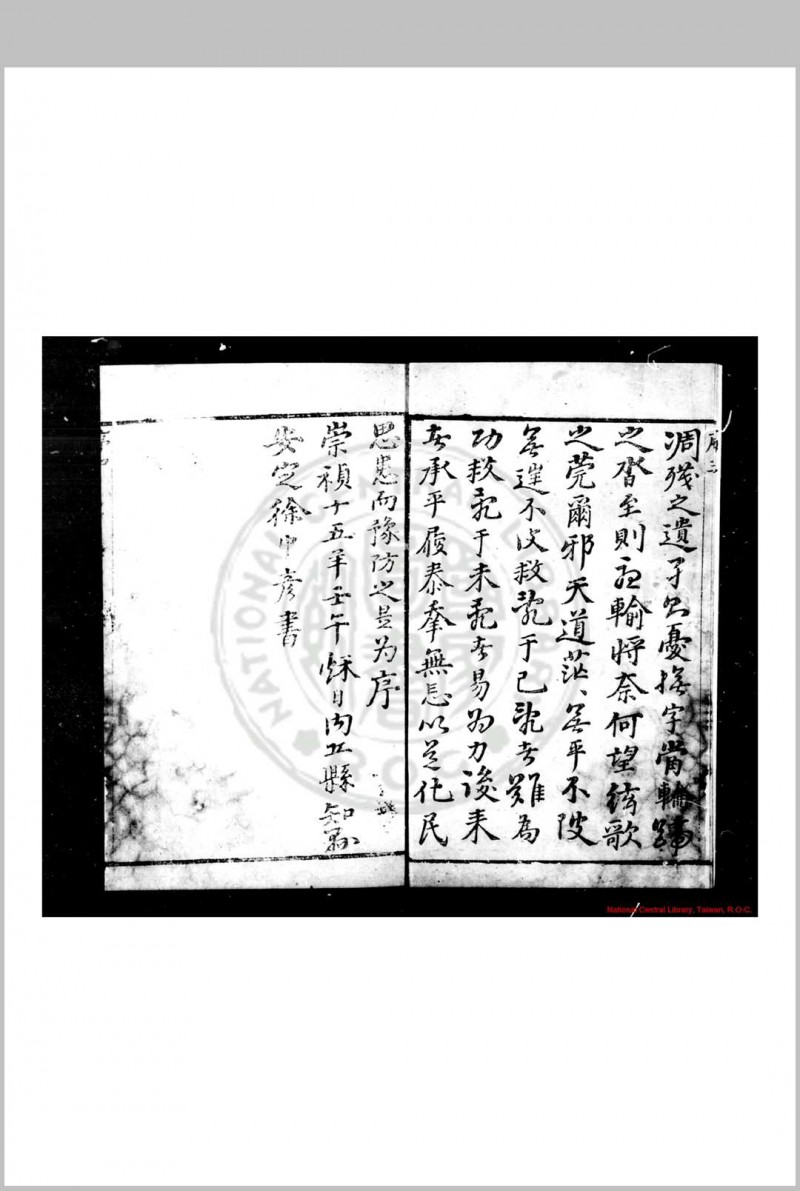 序三
凋殘之遺子只憂撫字當輪蹄
之沓至則飛輸將奈何望絃歌
之莞爾邪天道茫、無平不陂
無進不復救亂于已亂者難為
功救亂于未亂者易為力後来
者承平履泰奉無忘以道化民
思患而豫防之是為序
崇禎十五年壬午秋日內丘縣知縣
安定徐中彥書
NATIONAL CENTRAL LIBRARY
R.O.C.
National Central Library, Taiwan, R.O.C.